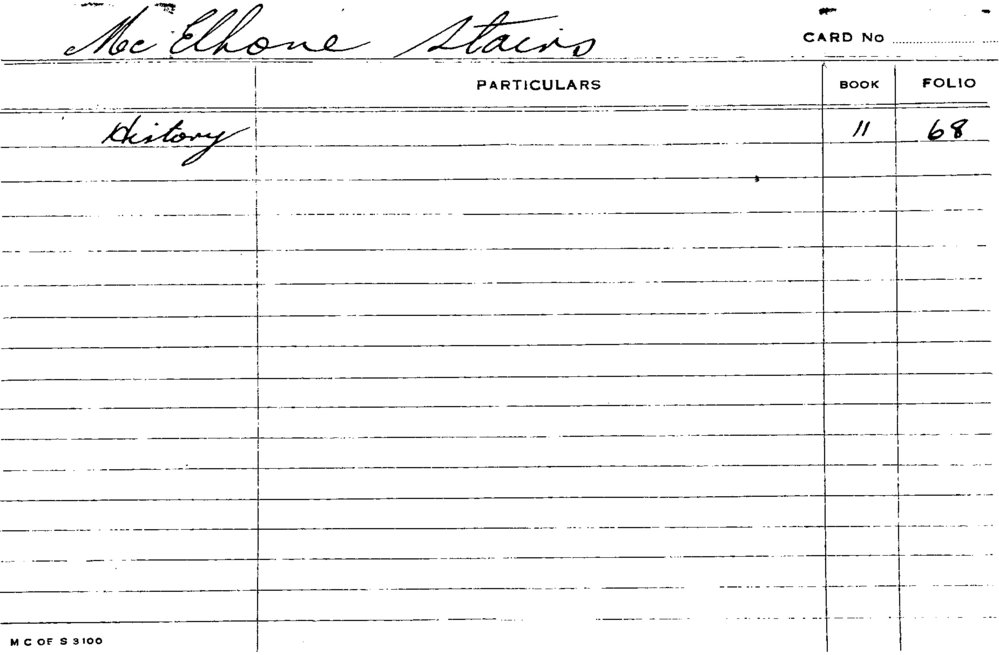 McElhone Stairs CARD No
PARTICULARS BOOK FOLIO
History 11 68
M C OF S 3100